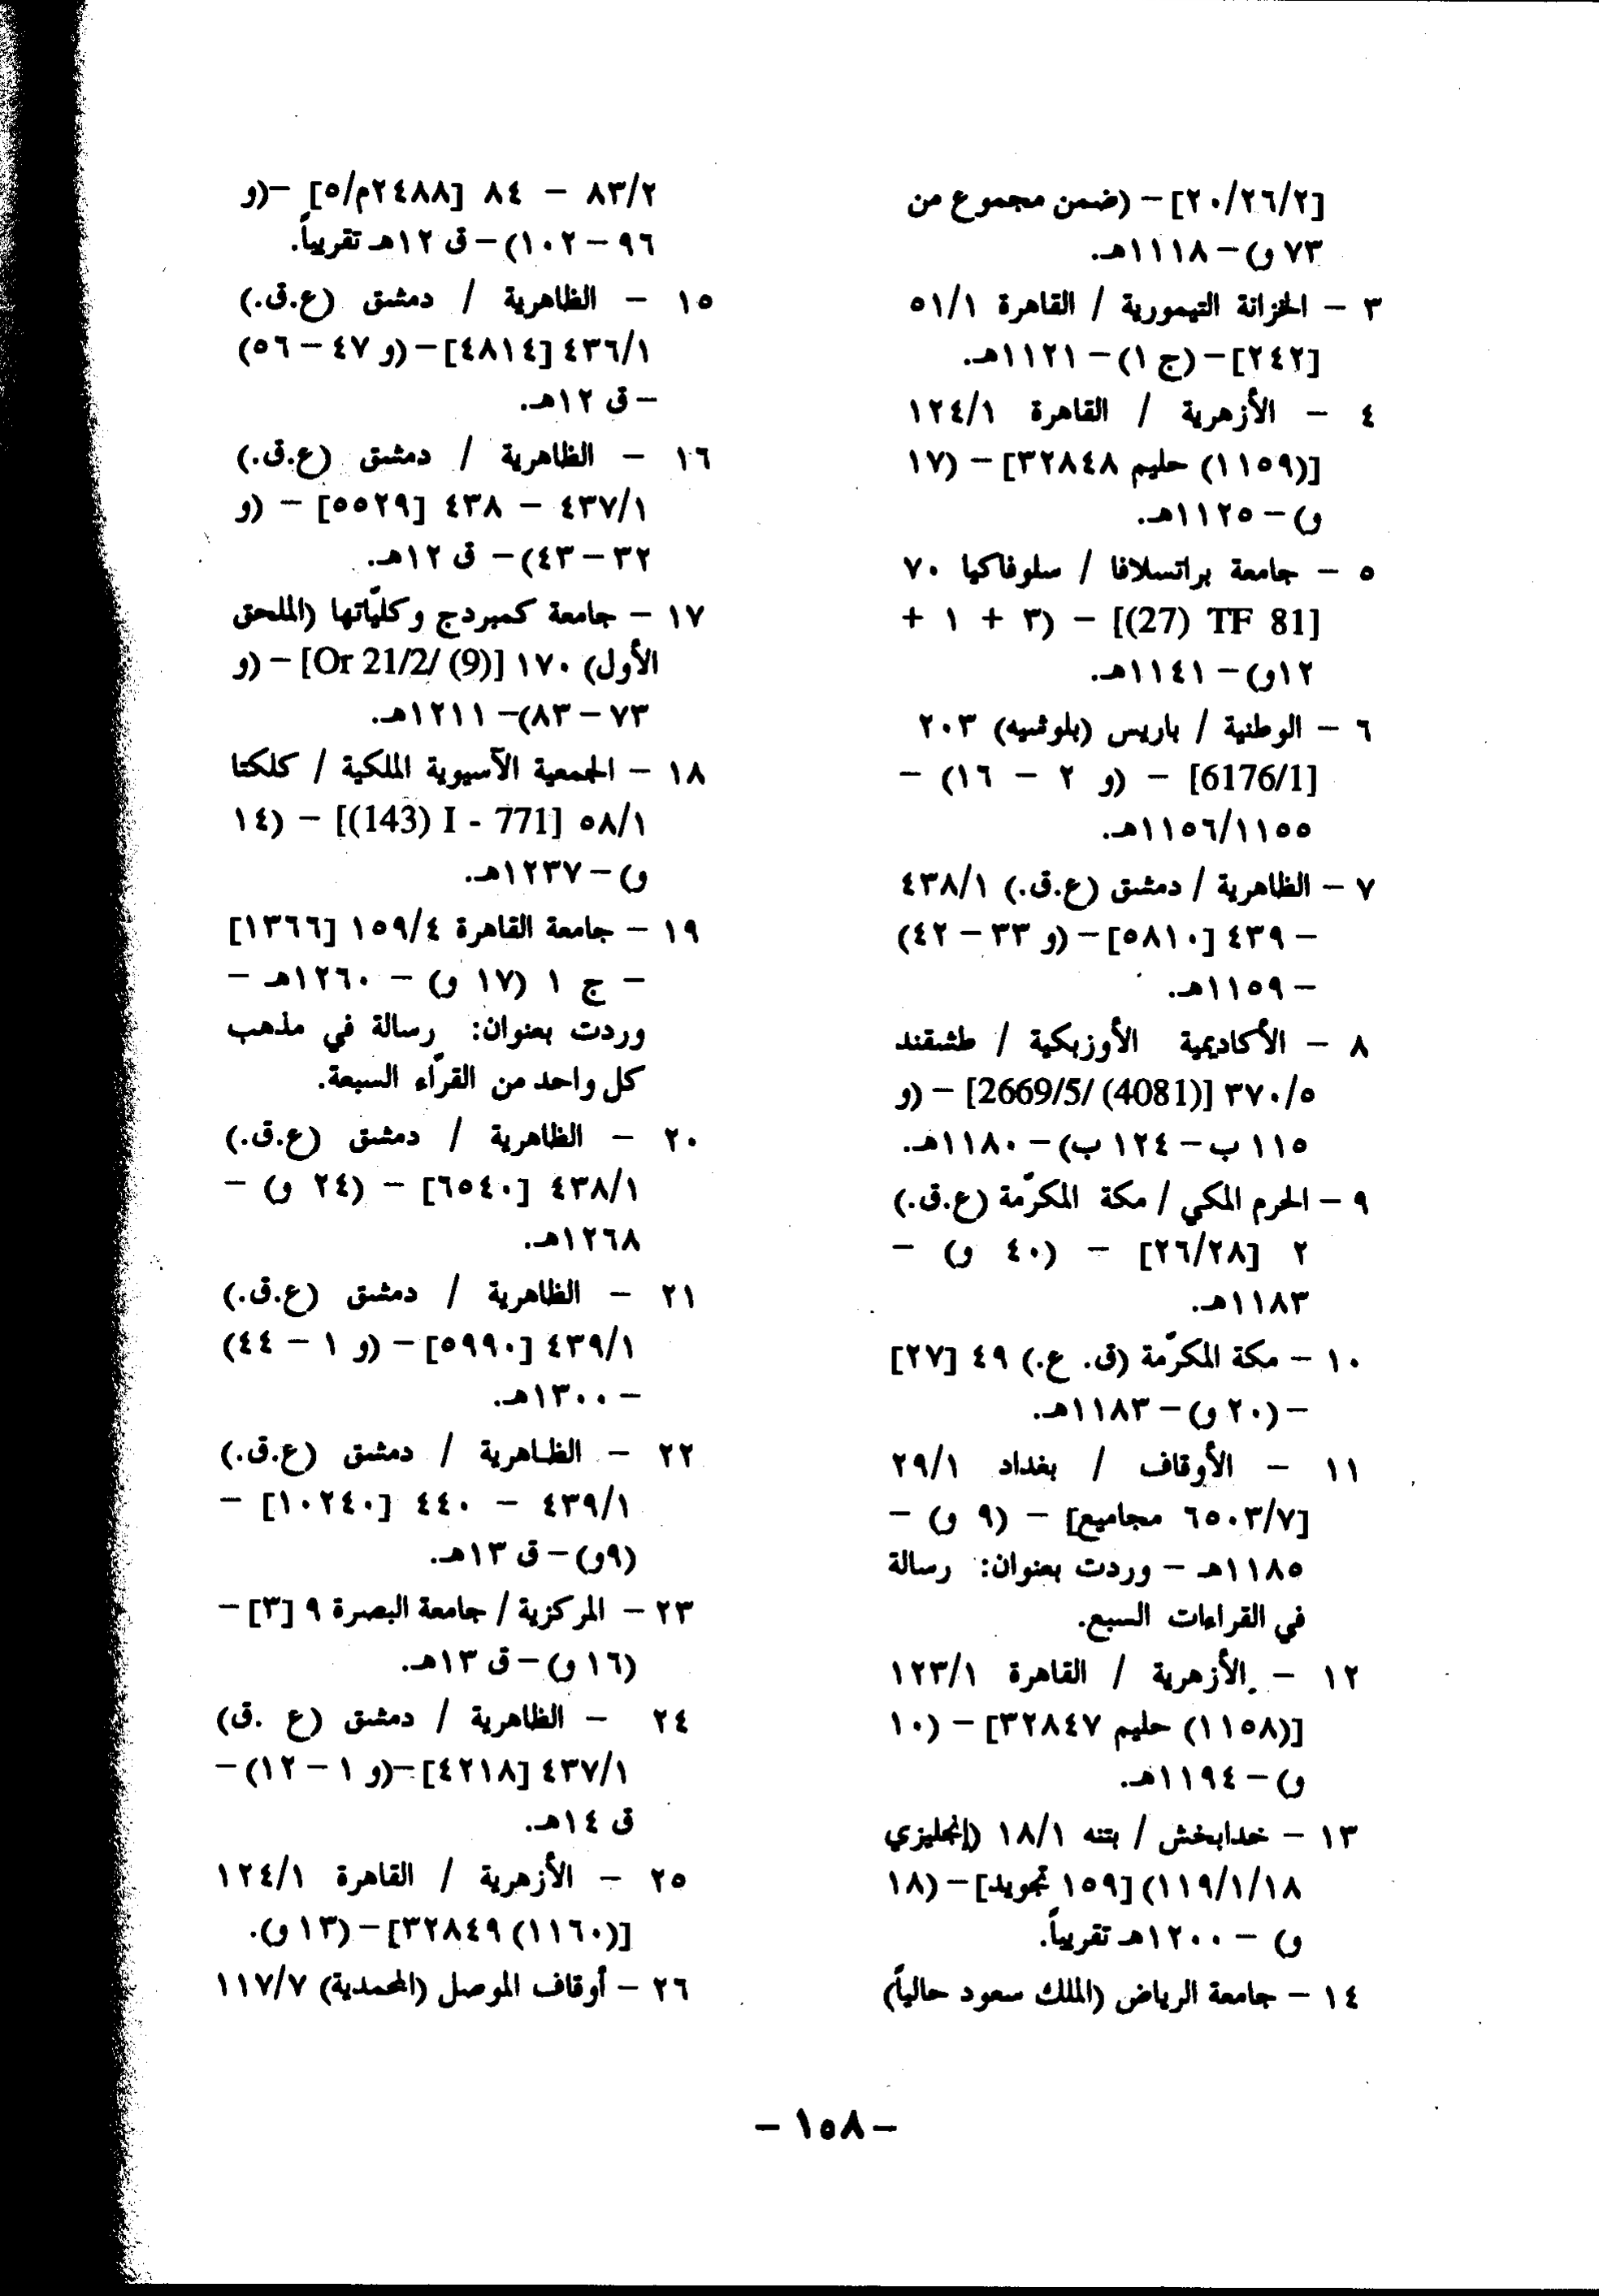 [٢٠/٢٦/٢] – (ضمن مجموع من
٧٣ و) – ١١١٨هـ.
٣ – الخزانة التيمورية / القاهرة ٥١/١
[٢٤٢] – (ج ١) – ١١٢١هـ.
٤ – الأزهرية / القاهرة ١٢٤/١
[(١١٥٩) حليم ٣٢٨٤٨] – (١٧
و) – ١١٢٥هـ.
٥ – جامعة براتسلافا / سلوفاكيا ٧٠
[(27) TF 81] – (٣ + ١ +
١٢و) – ١١٤١هـ.
٦ – الوطنية / باريس (بلوشيه) ٢٠٣
[6176/1] – (و ٢ – ١٦) –
١١٥٦/١١٥٥هـ.
٧ – الظاهرية / دمشق (ع.ق.) ٤٣٨/١
– ٤٣٩ [٥٨١٠] – (و ٣٣ – ٤٢)
– ١١٥٩هـ.
٨ – الأكاديمية الأوزبكية / طشقند
٣٧٠/٥ [2669/5/ (4081)] – (و
١١٥ ب – ١٢٤ ب) – ١١٨٠هـ.
٩ – الحرم المكي / مكة المكرّمة (ع.ق.)
٢ [٢٦/٢٨] – (٤٠ و) –
١١٨٣هـ.
١٠ – مكة المكرّمة (ق. ع.) ٤٩ [٢٧]
– (٢٠ و) – ١١٨٣هـ.
١١ – الأوقاف / بغداد ٢٩/١
[٦٥٠٣/٧ مجاميع] – (٩ و) –
١١٨٥هـ – وردت بعنوان: رسالة
في القراءات السبع.
١٢ – الأزهرية / القاهرة ١٢٣/١
[(١١٥٨) حليم ٣٢٨٤٧] – (١٠
و) – ١١٩٤هـ.
١٣ – خدابخش / بتنه ١٨/١ (إنجليزي
١١٩/١/١٨) [١٥٩ تجويد] – (١٨
و) – ١٢٠٠هـ تقريباً.
١٤ – جامعة الرياض (الملك سعود حالياً)
٨٣/٢ – ٨٤ [٢٤٨٨م/٥] – (و
٩٦ – ١٠٢) – ق ١٢هـ تقريباً.
١٥ – الظاهرية / دمشق (ع.ق.)
٤٣٦/١ [٤٨١٤] – (و ٤٧ – ٥٦)
– ق ١٢هـ.
١٦ – الظاهرية / دمشق (ع.ق.)
٤٣٧/١ – ٤٣٨ [٥٥٢٩] – (و
٣٢ – ٤٣) – ق ١٢هـ.
١٧ – جامعة كمبردج وكليّاتها (الملحق
الأول) ١٧٠ [Or 21/2/ (9)] – (و
٧٣ – ٨٣) – ١٢١١هـ.
١٨ – الجمعية الآسيوية الملكية / كلكتا
٥٨/١ [(143) I - 771] – (١٤
و) – ١٢٣٧هـ.
١٩ – جامعة القاهرة ١٥٩/٤ [١٣٦٦]
– ج ١ (١٧ و) – ١٢٦٠هـ –
وردت بعنوان: رسالة في مذهب
كل واحد من القرّاء السبعة.
٢٠ – الظاهرية / دمشق (ع.ق.)
٤٣٨/١ [٦٥٤٠] – (٢٤ و) –
١٢٦٨هـ.
٢١ – الظاهرية / دمشق (ع.ق.)
٤٣٩/١ [٥٩٩٠] – (و ١ – ٤٤)
– ١٣٠٠هـ.
٢٢ – الظاهرية / دمشق (ع.ق.)
٤٣٩/١ – ٤٤٠ [١٠٢٤٠] –
(٩و) – ق ١٣هـ.
٢٣ – المركزية / جامعة البصرة ٩ [٣] –
(١٦ و) – ق ١٣هـ.
٢٤ – الظاهرية / دمشق (ع .ق)
٤٣٧/١ [٤٢١٨] – (و ١ – ١٢) –
ق ١٤هـ.
٢٥ – الأزهرية / القاهرة ١٢٤/١
[(١١٦٠) ٣٢٨٤٩] – (١٣ و).
٢٦ – أوقاف الموصل (المحمدية) ١١٧/٧
– ١٥٨ –